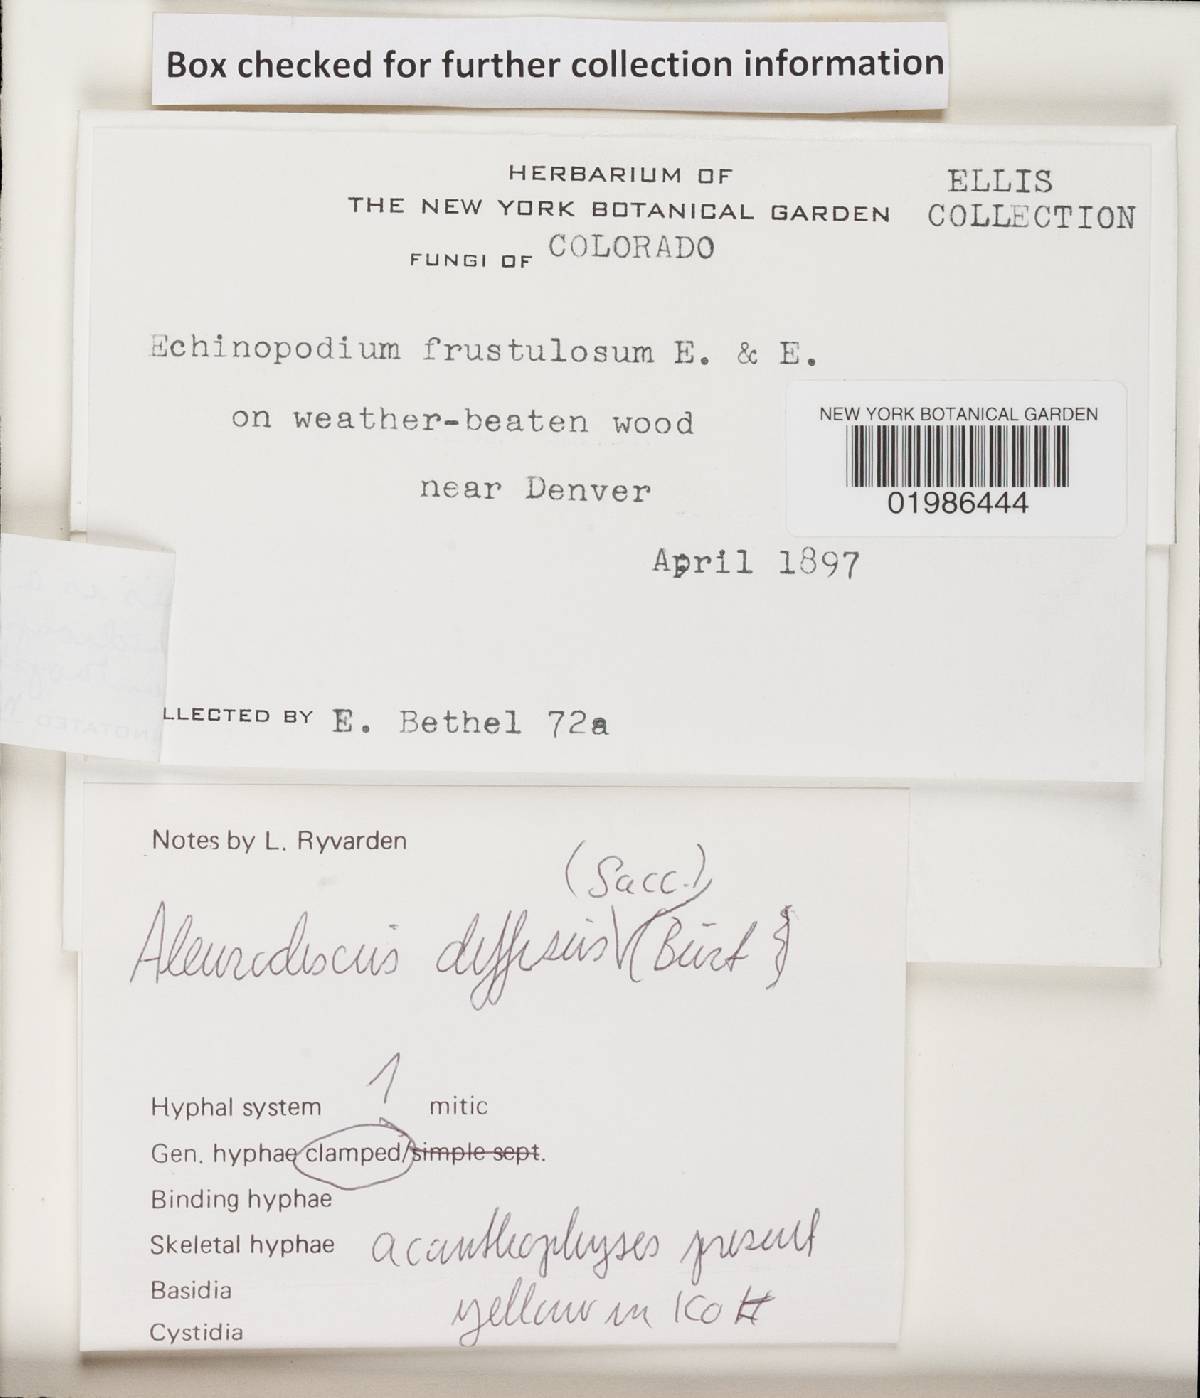 Box checked for further collection information
HERBARIUM OF
THE NEW YORK BOTANICAL GARDEN
ELLIS
COLLECTION
FUNGI OF COLORADO
Echinopodium frustulosum E. & E.
on weather-beaten wood
near Denver
NEW YORK BOTANICAL GARDEN
01986444
April 1897
LLECTED BY E. Bethel 72a
Notes by L. Ryvarden
(Sacc.)
Aleurodiscus diffusus (Burt
Hyphal system 1 mitic
Gen. hyphae clamped/simple sept.
Binding hyphae
Skeletal hyphae
acanthophyses present
Basidia
yellow in KOH
Cystidia